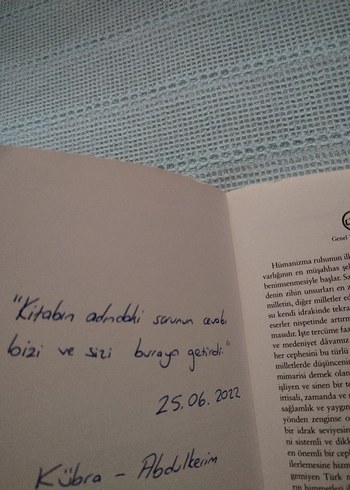 "Kitabın adındaki sorunun cevabı
bizi ve sizi buraya getirdi."
25.06.2022
Kübra - Abdulkerim
Genel
Hümanizma ruhunun ilk
varlığının en müşahhas şek
benimsenmesiyle başlar. Sa
denin zihin unsurları en z
milletin, diğer milletler ed
su kendi idrakinde tekra
eserler nispetinde artırm
masıdır. İşte tercüme faa
ve medeniyet dâvamız
her cephesini bu türlü
milletlerde düşüncenin
mimarisi demek olan
işliyen ve sinen bir te
ittisali, zamanda ve
sağlamlık ve yaygın
yönden zenginse o
bir idrak seviyesin
ni sistemli ve dikk
en önemli bir ceph
ilerlemesine hizm
gemiyen Türk m
rın himmetleri il